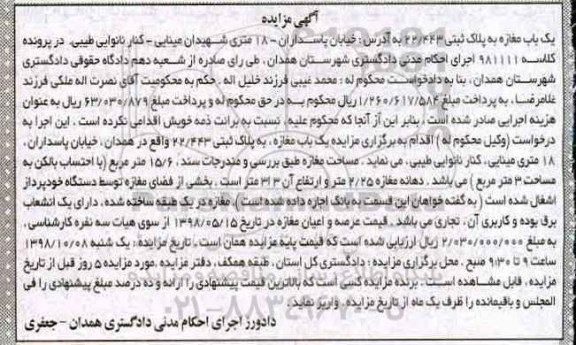 آگهی مزایده
یک باب مغازه به پلاک ثبتی ۲۲/۴۴۳ به آدرس : خیابان پاسداران - ۱۸ متری شهیدان مینایی - کنار نانوایی طیبی. در پرونده
کلاسه ۹۸۱۱۱۱ اجرای احکام مدنی دادگستری شهرستان همدان ، طی رای صادره از شعبه دهم دادگاه حقوقی دادگستری
شهرستان همدان ، بنا به دادخواست محکوم له : محمد غیبی فرزند خلیل اله . حکم به محکومیت آقای نصرت اله ملکی فرزند
غلامرضا ، به پرداخت مبلغ ۱/۲۶۰/۶۱۷/۵۸۴ ریال محکوم به در حق محکوم له و پرداخت مبلغ ۶۳/۰۳۰/۸۷۹ ریال به عنوان
هزینه اجرایی صادر شده است ، بنابر این از آنجا که محکوم علیه ، نسبت به برائت ذمه خویش اقدامی نکرده است . این اجرا به
درخواست (وکیل محکوم له ) اقدام به برگزاری مزایده یک باب مغازه ، به پلاک ثبتی ۲۲/۴۴۳ واقع در همدان ، خیابان پاسداران ،
۱۸ متری مینایی ، کنار نانوایی طیبی ، می نماید . مساحت مغازه طبق بررسی و مندرجات سند ، ۱۵/۶ متر مربع (با احتساب بالکن به
مساحت ۳ متر مربع ) می باشد . دهانه مغازه ۲/۲۵ متر و ارتفاع آن ۳/۳ متر است . بخشی از فضای مغازه توسط دستگاه خودپرداز
اشغال شده است ( به گفته خواهان این قسمت به بانک اجاره داده شده است ) مغازه در یک طبقه ساخته شده ، دارای یک انشعاب
برق بوده و کاربری آن ، تجاری می باشد . قیمت عرصه و اعیان مغازه در تاریخ ۱۳۹۸/۰۵/۱۵ از سوی هیات سه نفره کارشناسی ،
به مبلغ ۲/۰۳۰/۰۰۰/۰۰۰ ریال ارزیابی شده است که قیمت پایه مزایده همان است . تاریخ مزایده : یک شنبه ۱۳۹۸/۱۰/۰۸
ساعت ۹ تا ۹:۳۰ صبح . محل برگزاری مزایده : دادگستری کل استان ، طبقه همکف ، دفتر مزایده . مورد مزایده ۵ روز قبل از تاریخ
مزایده ، قابل مشاهده است . برنده مزایده کسی است که بالاترین قیمت پیشنهادی را ارائه و ده درصد مبلغ پیشنهادی را فی
المجلس و باقیمانده را ظرف یک ماه از تاریخ مزایده ، واریز نماید .
دادورز اجرای احکام مدنی دادگستری همدان - جعفری